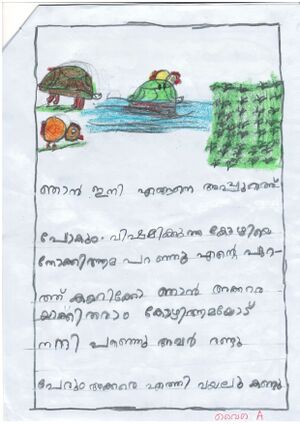 ഞാൻ ഇനി എങ്ങനെ അപ്പുറത്ത്
പോകും. വിഷമിക്കുന്ന കോഴിയെ
നോക്കിആമ പറഞ്ഞു എന്റെ പുറ-
ത്ത് കയറിക്കോ ഞാൻ അക്കരെ
ആക്കിതരാം കോഴിആമയോട്
നന്ദി പറഞ്ഞു അവർ രണ്ടു
പേരും അക്കരെ എത്തി വയലു കണ്ടു
A